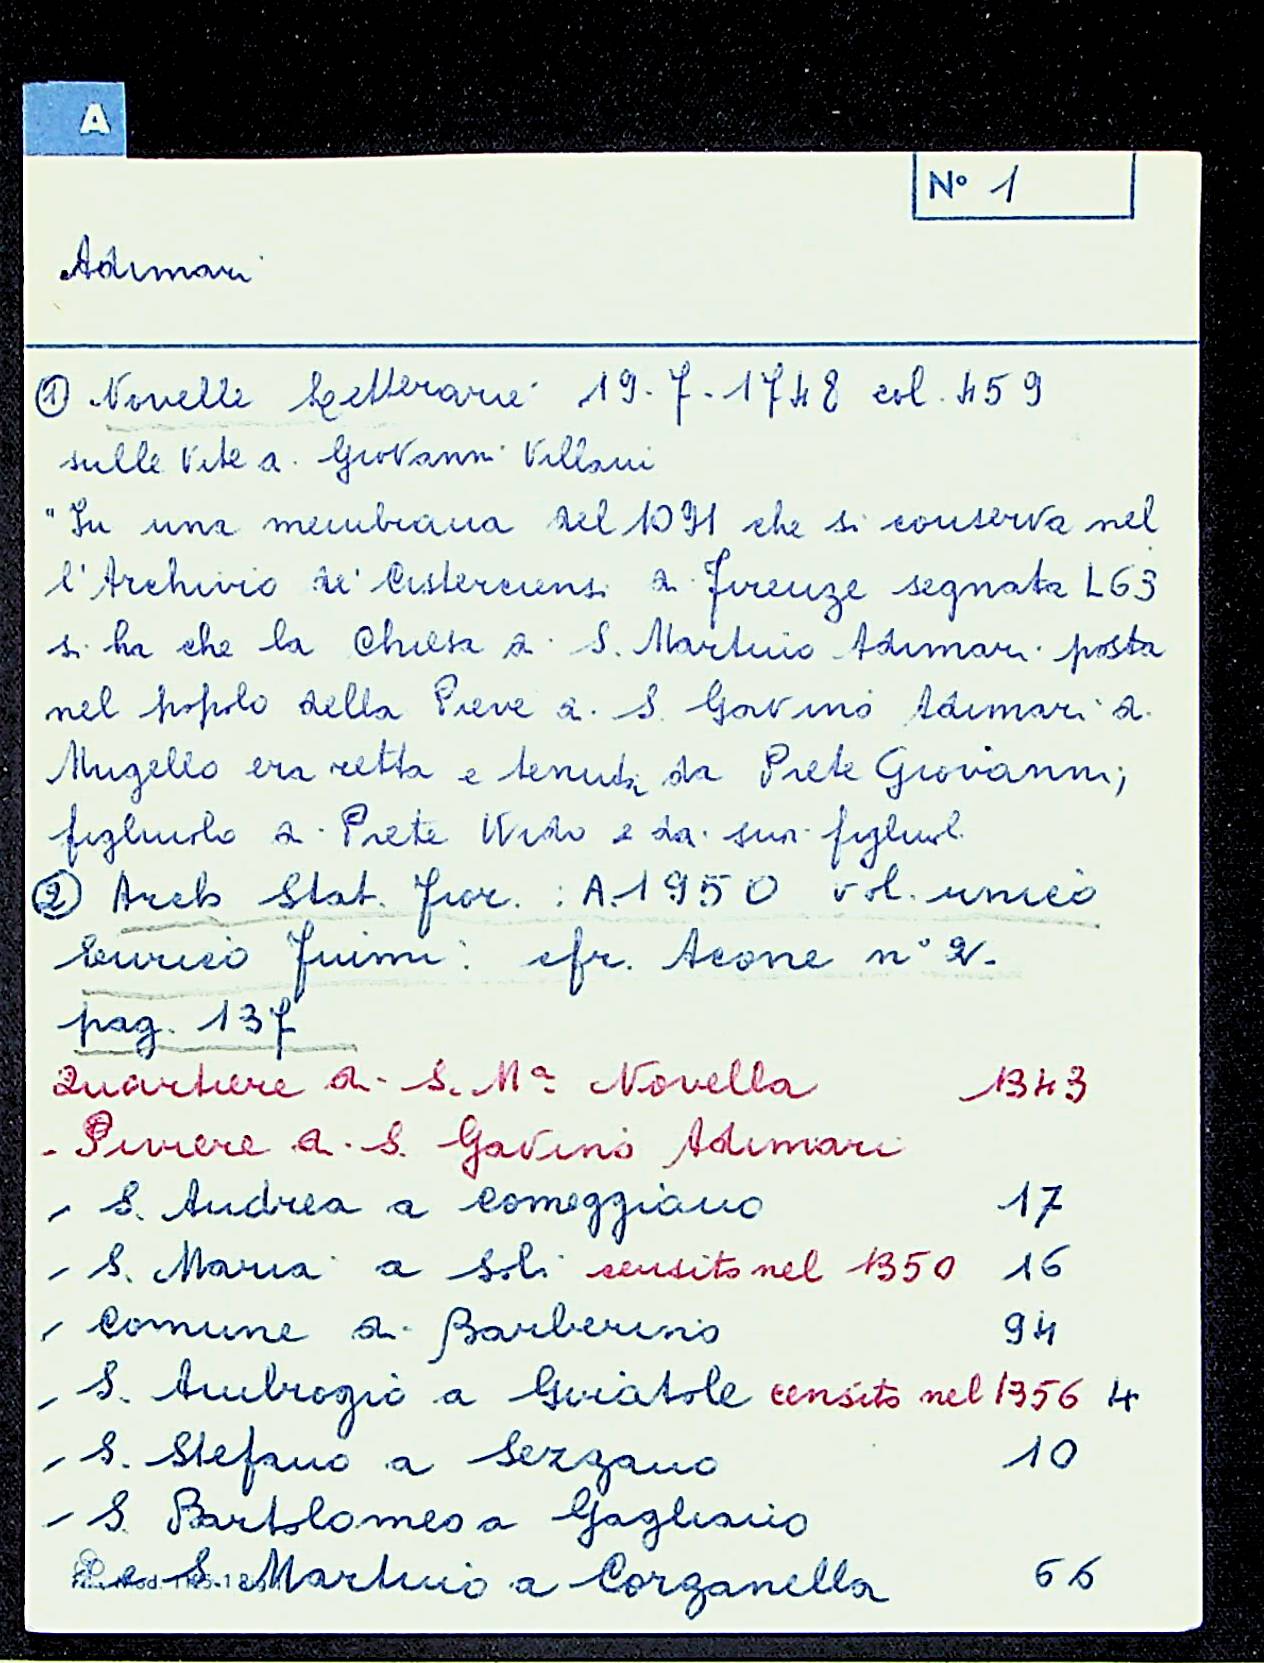 A
N° 1
Adimari
① Novelle Letterarie 19-7-1748 col. 459
sulle vite di Giovanni Villani
"In una membrana del 1091 che si conserva nel
l'Archivio de' Cisterciensi di Firenze segnata L63
si ha che la Chiesa di S. Martino Adimari posta
nel popolo della Pieve di S. Gavino Adimari di
Mugello era retta e tenuta da Prete Giovanni,
figliuolo di Prete Wido e da suoi figliuoli
② Arch Stat. Fior. : A.1950 vol. unico
Enrico Fiumi: cfr. Acone n° 2.
pag. 137
Quartiere di S. Mª Novella 1343
- Piviere di S. Gavino Adimari
- S. Andrea a Comeggiano 17
- S. Maria a Soli censito nel 1350 16
- Comune di Barberino 94
- S. Ambrogio a Gviatole censito nel 1356 4
- S. Stefano a Sezzano 10
- S. Bartolomeo a Gagliano
e S. Martino a Corzanella 66